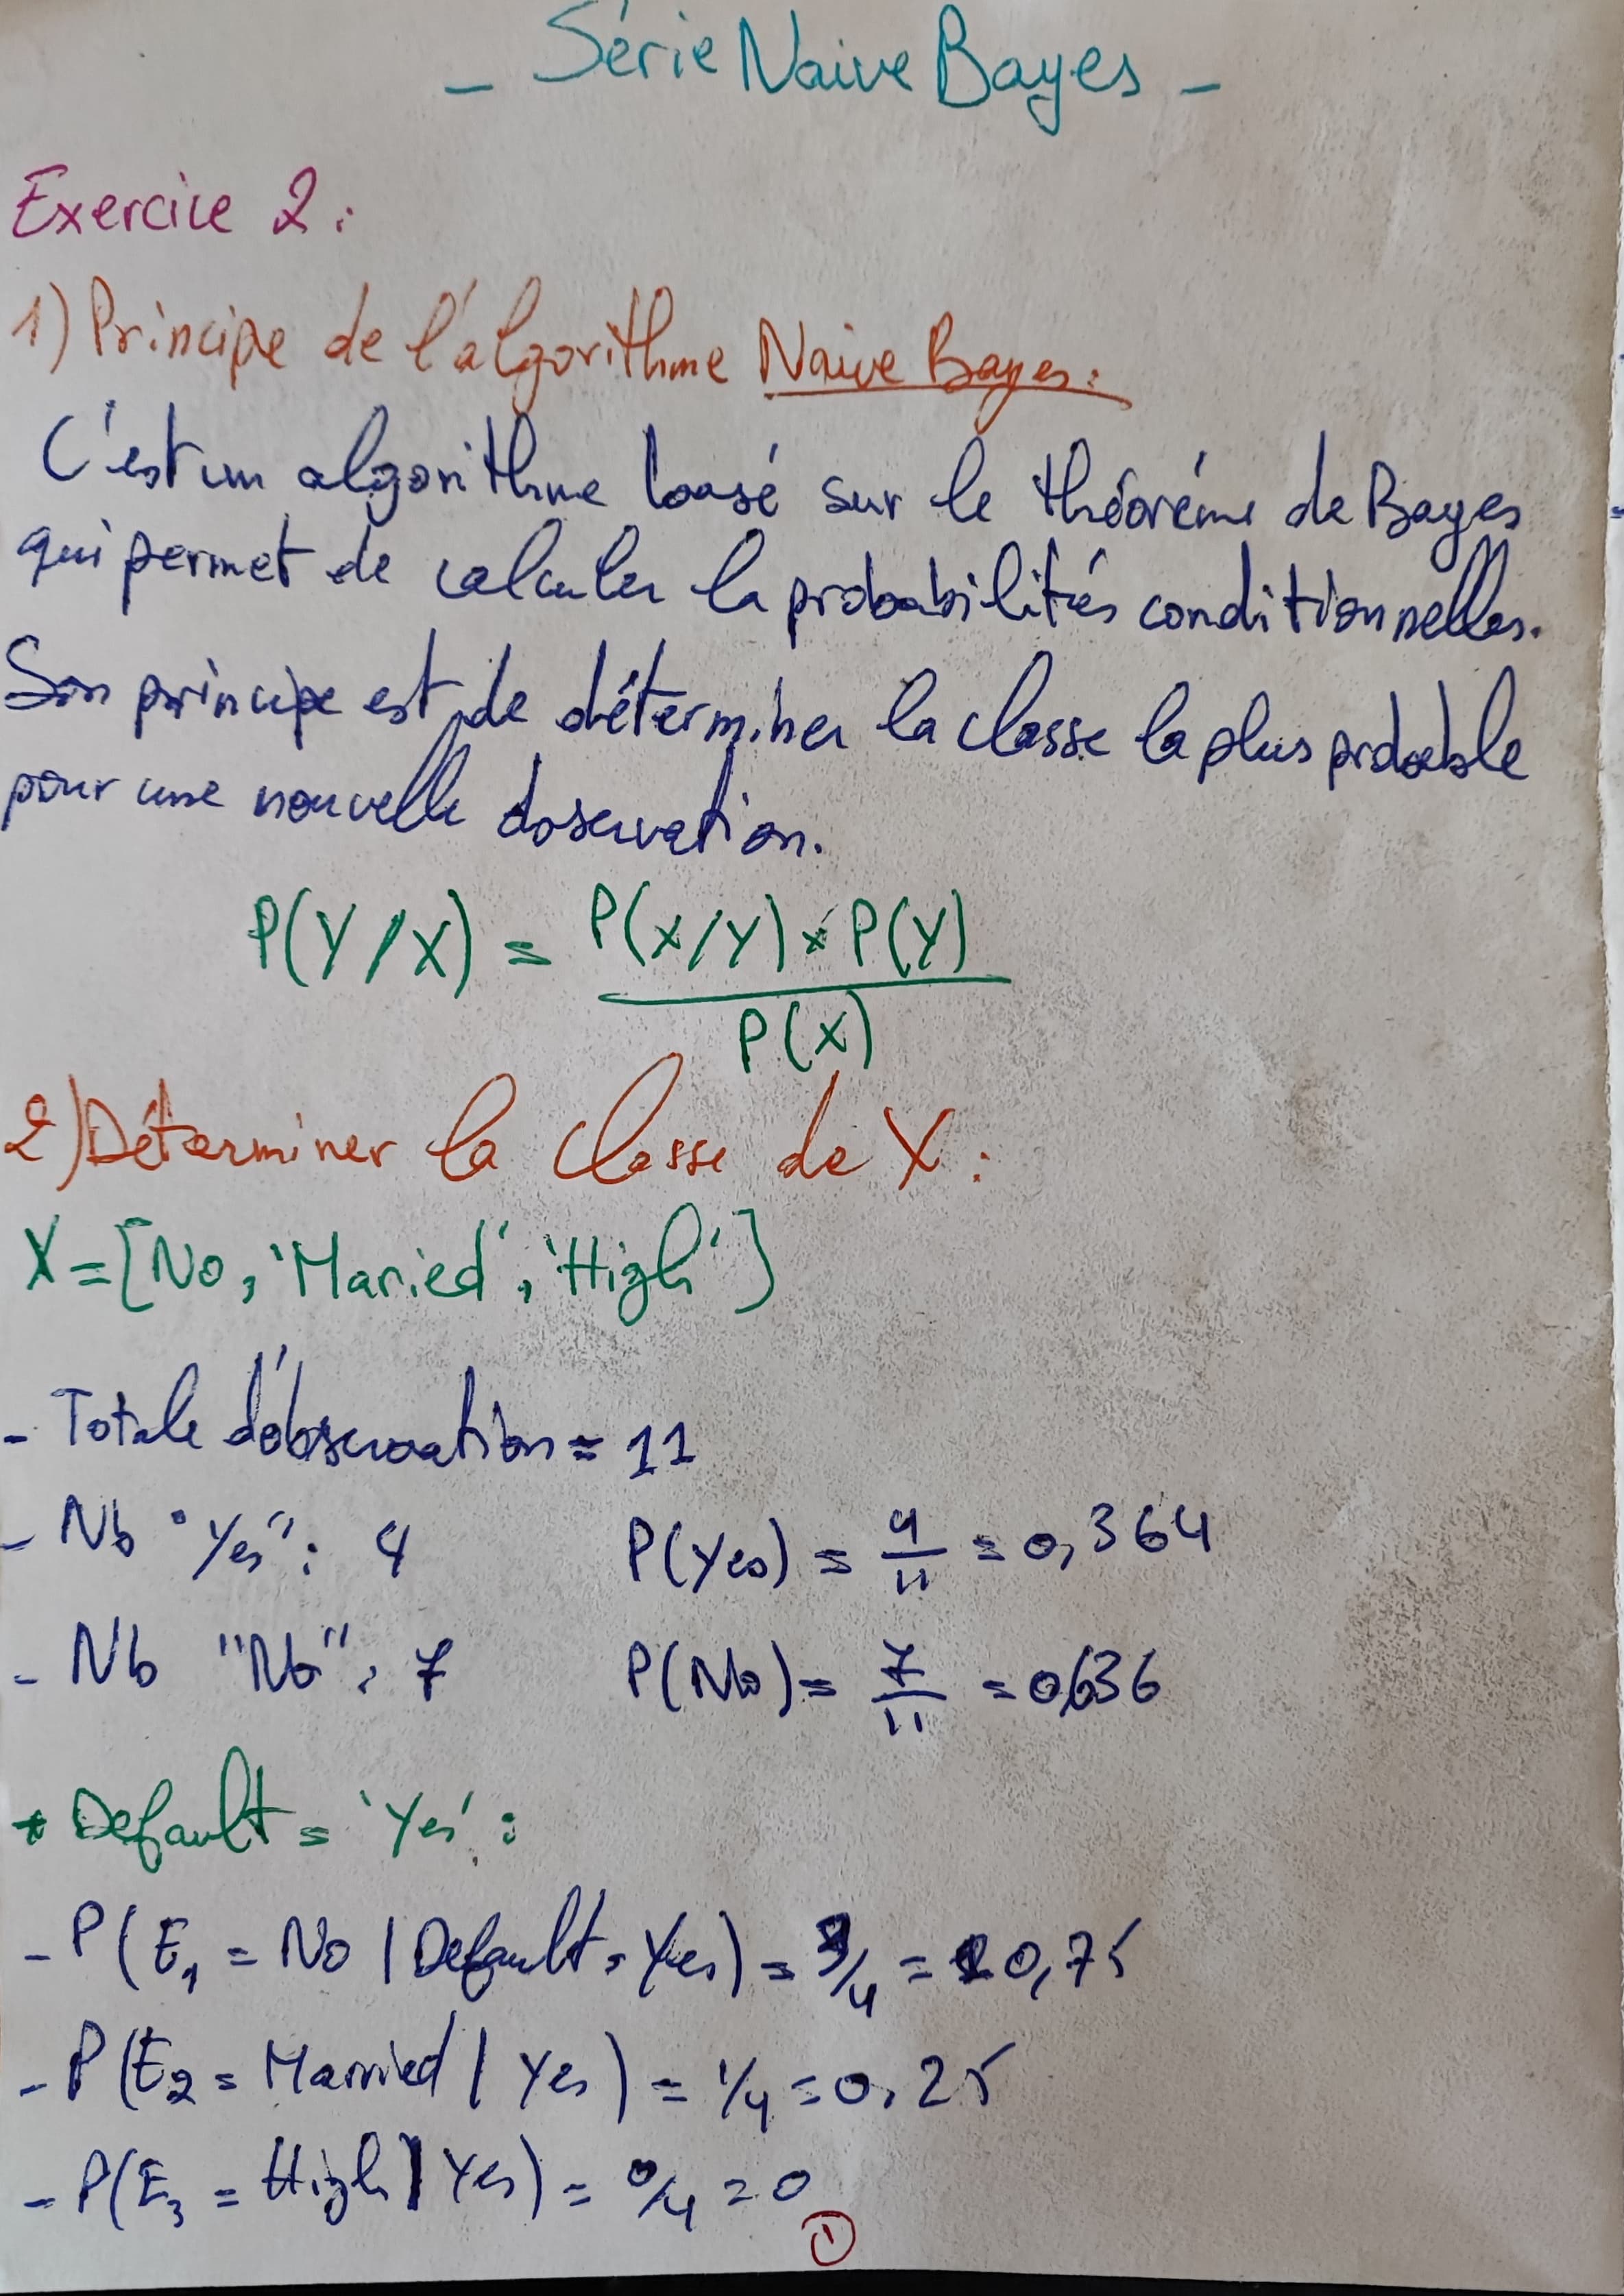 - Série Naive Bayes -
Exercice 2 :
1) Principe de l'algorithme Naive Bayes :
C'est un algorithme basé sur le théoréme de Bayes
qui permet de calculer la probabilités conditionnelles.
Son principe est de déterminer la classe la plus probable
pour une nouvelle observation.
P(Y/X) = P(X/Y) × P(Y) / P(X)
2) Déterminer la classe de X :
X = [No, 'Maried', 'High']
- Totale d'observation = 11
- Nb "Yes" : 4 P(Yes) = 4/11 = 0,364
- Nb "No" : 7 P(No) = 7/11 = 0,636
* Default = 'Yes' :
- P(E1 = No | Default = Yes) = 3/4 = 0,75
- P(E2 = Married | Yes) = 1/4 = 0,25
- P(E3 = High | Yes) = 0/4 = 0
1